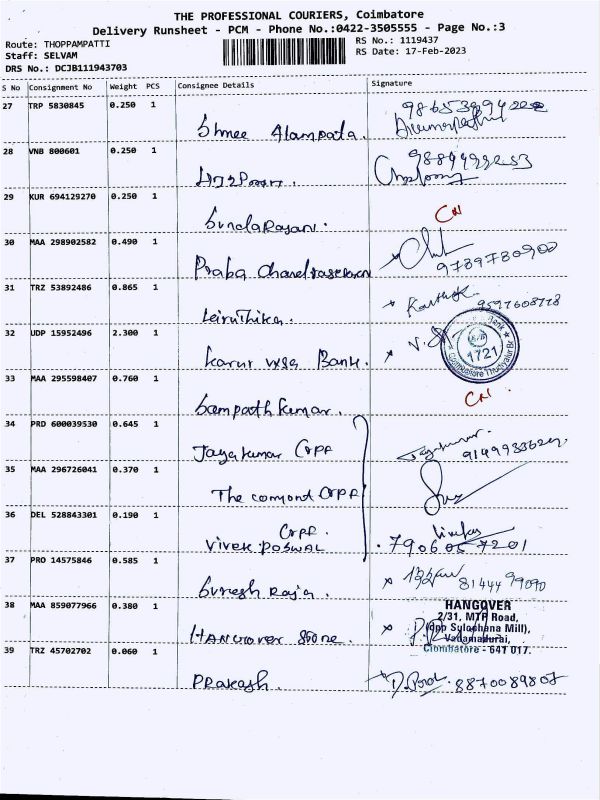 THE PROFESSIONAL COURIERS, Coimbatore
Delivery Runsheet - PCM - Phone No.:0422-3505555 - Page No.:3
Route: THOPPAMPATTI
Staff: SELVAM
DRS No.: DCJB111943703
RS No.: 1119437
RS Date: 17-Feb-2023
S No Consignment No Weight PCS Consignee Details Signature
27 TRP 5830845 0.250 1
Shree
28 VNB 800601 0.250 1
29 KUR 694129270 0.250 1
SundaRajan.
CN
30 MAA 298902582 0.490 1
Praba Chandrasekaran
9789780900
31 TRZ 53892486 0.865 1
Karthik
32 UDP 15952496 2.300 1
Karur Vysa Bank.
Bank
1721
Coimbatore Thudiyalur Br.
33 MAA 295598407 0.760 1
Sampath Kumar.
CN.
34 PRD 600039530 0.645 1
Jayakumar CRPF
35 MAA 296726041 0.370 1
The comond CRPF
36 DEL 528843301 0.190 1
CRPF.
Vivek POSWAL
7906057201
37 PRO 14575846 0.585 1
Suresh Raja.
81444 99090
38 MAA 859077966 0.380 1
Hangover Store.
HANGOVER
2/31, MTP Road,
(Opp Sulochana Mill),
Vadamadurai,
Coimbatore - 641 017.
39 TRZ 45702702 0.060 1
PRakash.
8870089807